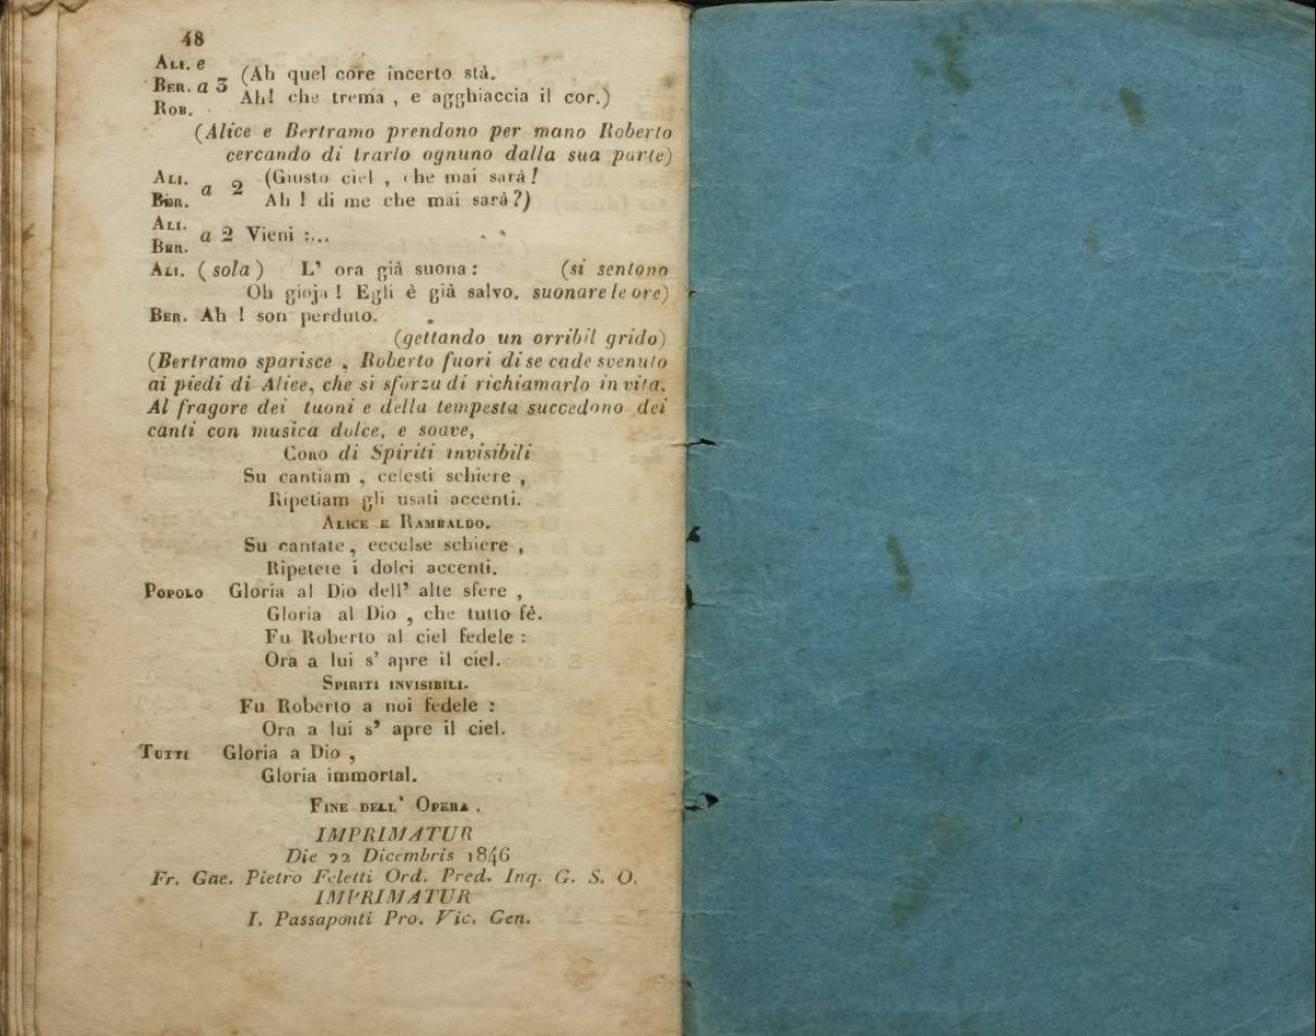 48
ALI. e
BER. a 3 (Ah quel core incerto stà.
ROB. Ah! che trema , e agghiaccia il cor.)
(Alice e Bertramo prendono per mano Roberto
cercando di trarlo ognuno dalla sua parte)
ALI. a 2 (Giusto ciel , che mai sarà!
BER. Ah ! di me che mai sarà?)
ALI.
BER. a 2 Vieni :...
ALI. (sola) L' ora già suona : (si sentono
Oh gioja ! Egli è già salvo. suonare le ore)
BER. Ah ! son perduto.
(gettando un orribil grido)
(Bertramo sparisce , Roberto fuori di se cade svenuto
ai piedi di Alice, che si sforza di richiamarlo in vita.
Al fragore dei tuoni e della tempesta succedono dei
canti con musica dolce, e soave,
CORO di Spiriti invisibili
Su cantiam , celesti schiere ,
Ripetiam gli usati accenti.
ALICE E RAMBALDO.
Su cantate, eccelse schiere ,
Ripetete i dolci accenti.
POPOLO Gloria al Dio dell' alte sfere ,
Gloria al Dio , che tutto fè.
Fu Roberto al ciel fedele :
Ora a lui s' apre il ciel.
SPIRITI INVISIBILI.
Fu Roberto a noi fedele :
Ora a lui s' apre il ciel.
TUTTI Gloria a Dio ,
Gloria immortal.
FINE DELL' OPERA .
IMPRIMATUR
Die 22 Dicembris 1846
Fr. Gae. Pietro Feletti Ord. Pred. Inq. G. S. O.
IMPRIMATUR
I. Passaponti Pro. Vic. Gen.